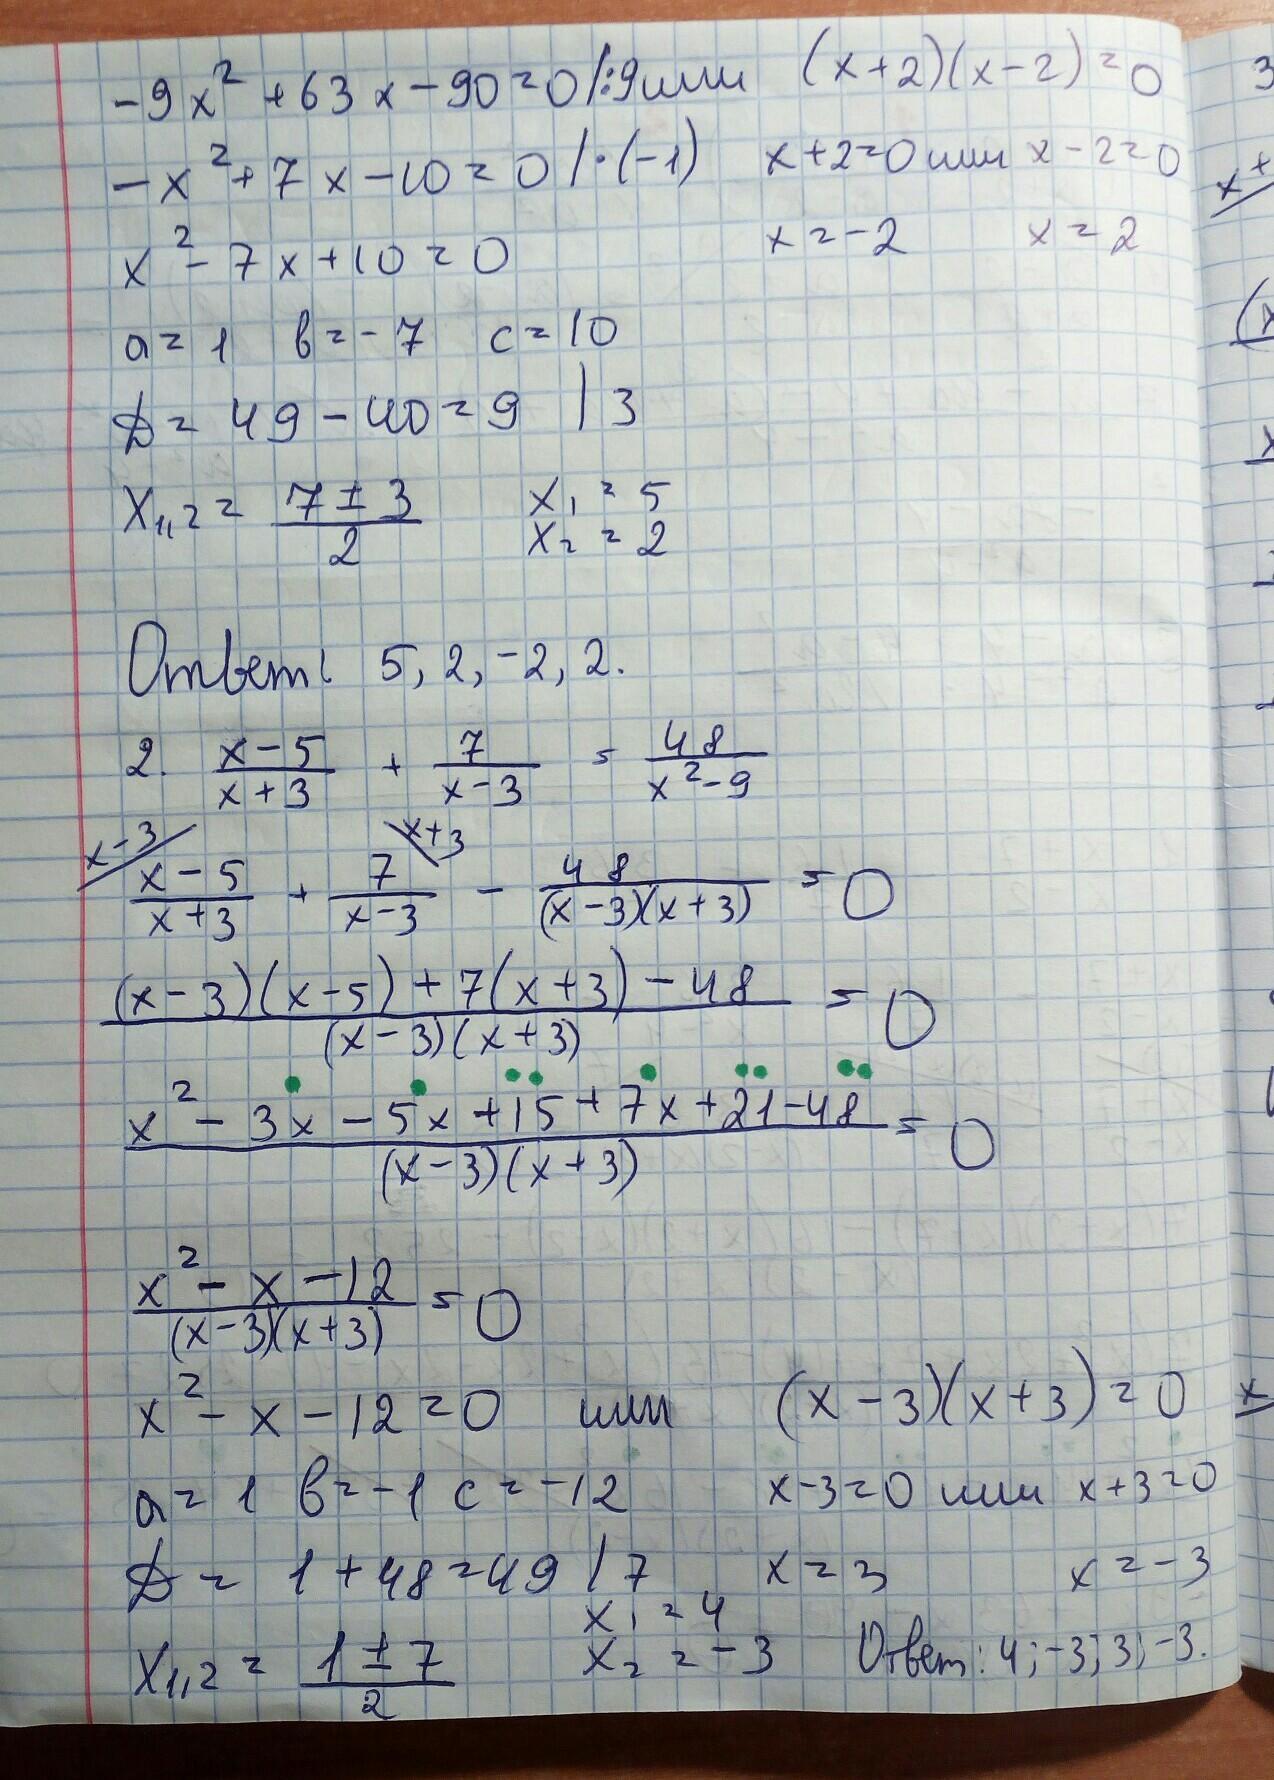 -9x² + 63x - 90 = 0 /:9 или (x+2)(x-2) = 0
-x² + 7x - 10 = 0 / ·(-1) x+2=0 или x-2=0
x² - 7x + 10 = 0 x = -2 x = 2
a = 1 b = -7 c = 10
D = 49 - 40 = 9 | 3
x₁,₂ = (7 ± 3)/2 x₁ = 5
x₂ = 2
Ответ: 5, 2, -2, 2.
2. (x-5)/(x+3) + 7/(x-3) = 48/(x²-9)
x-3 x+3
(x-5)/(x+3) + 7/(x-3) - 48/((x-3)(x+3)) = 0
((x-3)(x-5) + 7(x+3) - 48)/((x-3)(x+3)) = 0
(x² - 3x - 5x + 15 + 7x + 21 - 48)/((x-3)(x+3)) = 0
(x² - x - 12)/((x-3)(x+3)) = 0
x² - x - 12 = 0 или (x-3)(x+3) = 0
a = 1 b = -1 c = -12 x-3=0 или x+3=0
D = 1 + 48 = 49 / 7 x = 3 x = -3
x₁,₂ = (1 ± 7)/2 x₁ = 4
x₂ = -3 Ответ: 4; -3; 3; -3.